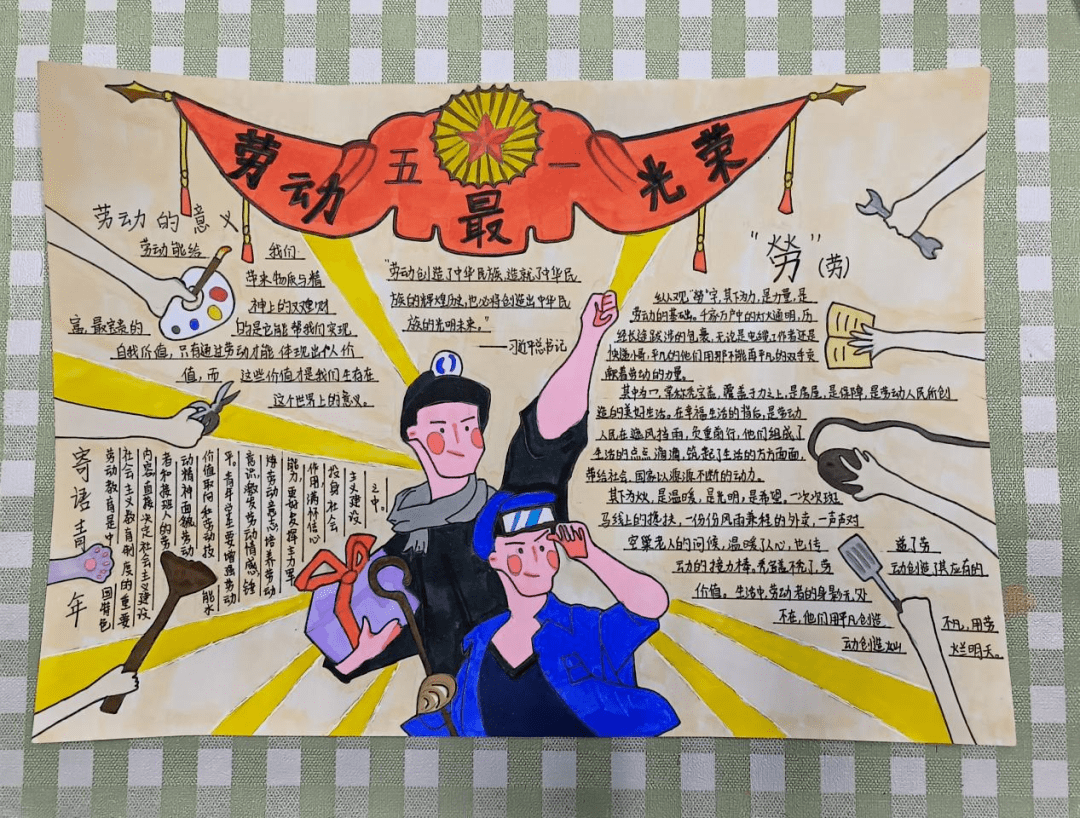 劳动
五一
最
光荣
劳动的意义
劳动能给 我们
带来物质与精
神上的双赢财
富,最宝贵的 的是它能帮我们实现
自我价值,只有通过劳动才能体现出个人价
值,而 这些价值才是我们生存在
这个世界上的意义。
"劳动创造了中华民族,造就了中华民
族的辉煌历史,也必将创造出中华民
族的光明未来。"
——习近平总书记
"劳"(劳)
纵人观"劳"字,其下为力,是力量,是
劳动的基础。千家万户中的灯火通明,历
经长途跋涉的包裹,无论是电缆工作者还是
快递小哥,平凡的他们用那不能再平凡的双手贡
献着劳动的力量。
其中为冖,常做完宝盖,覆盖于力之上,是房屋,是保障,是劳动人民所创
造的美好生活。在幸福生活的背后,是劳动
人民在遮风挡雨,负重前行,他们组成了
生活的点点滴滴,筑起了生活的方方面面,
带给社会、国家以源源不断的动力。
其下为火,是温暖,是光明,是希望,一次次斑
马线上的搀扶,一份份风雨兼程的外卖,一声声对
空巢老人的问候,温暖了人心,也传 递了劳
动的接力棒,秀 劳 动创造了其应有的
价值。生活中,劳动者的身影无处
不在,他们用平凡创造 不凡,用劳
动创造灿 烂明天。
寄语青年
劳动教育是中国特色
社会主义教育制度的重要
内容,直接决定社会主义建设
者和接班人的劳
动精神面貌、劳动
价值取向和劳动技
能水
平。青年学生要增强劳动
意识,激发劳动情感,锤
炼劳动意志,培养劳动
能力,更好发挥主力军
作用,满怀信心
投身 社会
主义建设
之中。